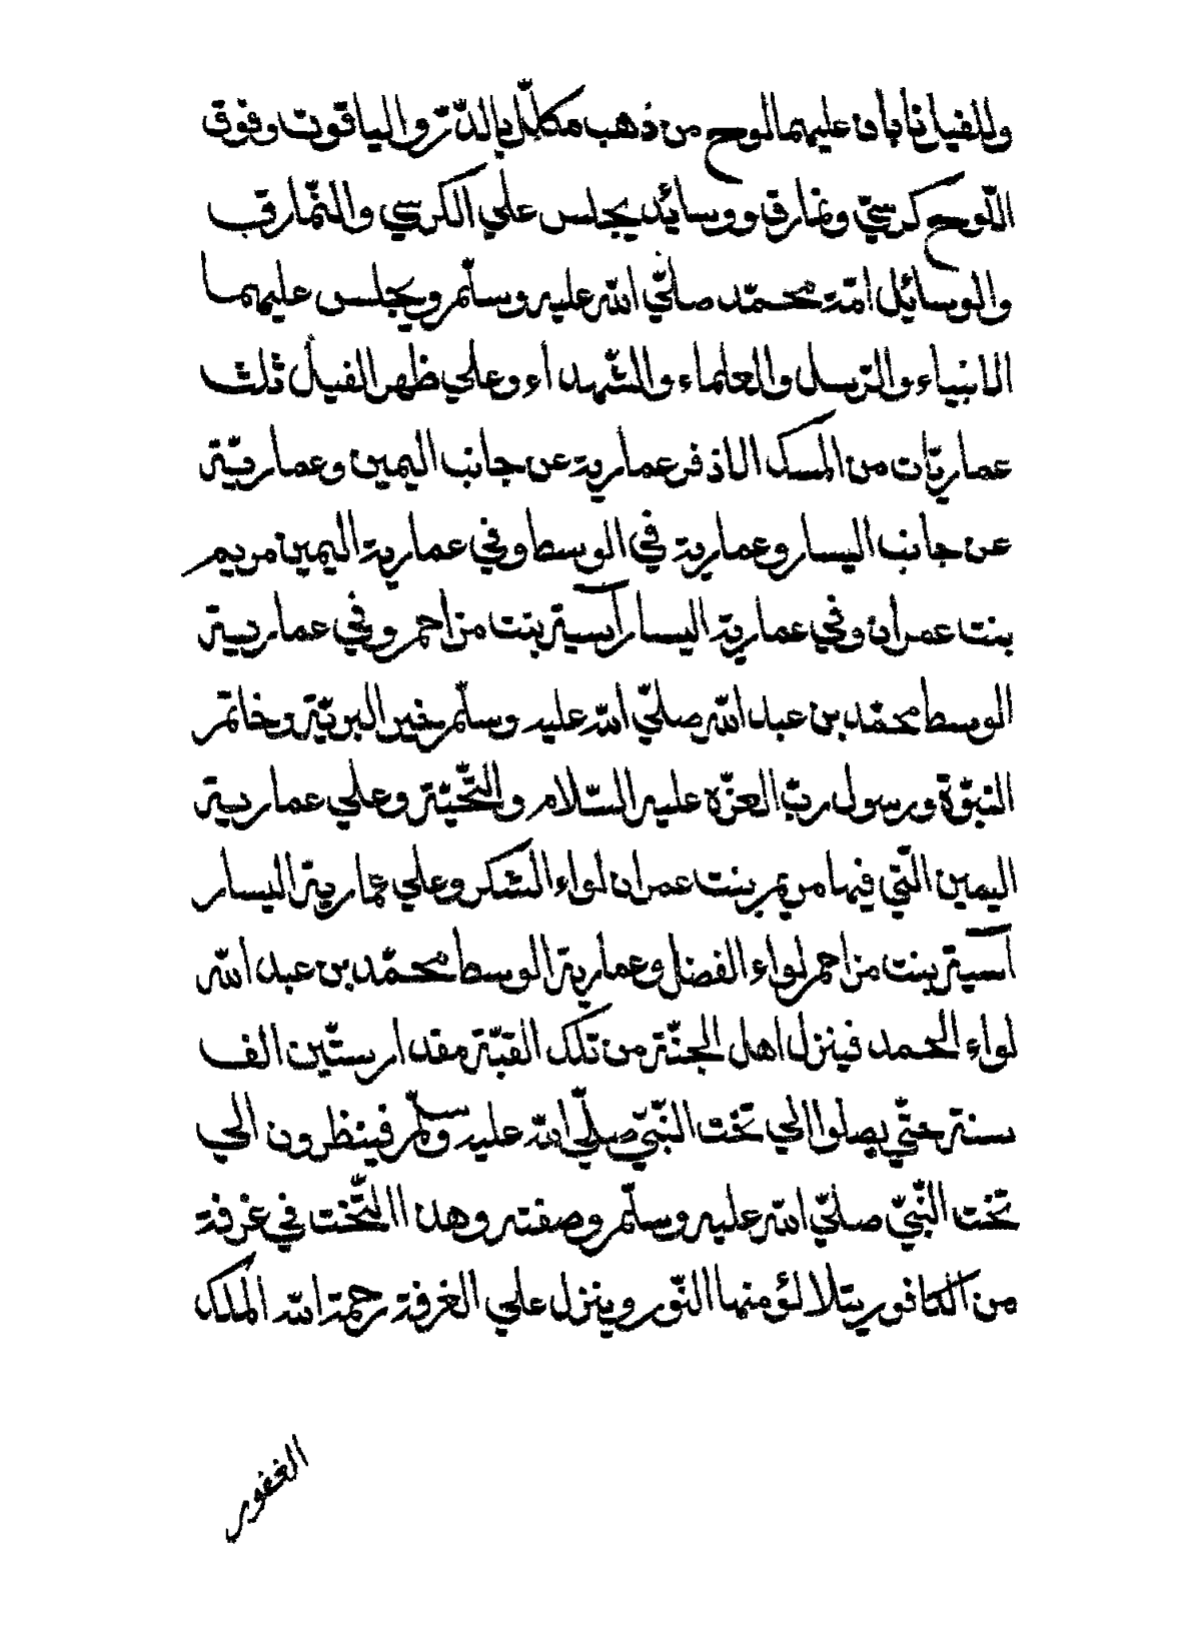 وللفيل نابان عليهما لوح من ذهب مكلّل بالدّرّ والياقوت وفوق
اللّوح كرسيّ ونمارق ووسائد يجلس علي الكرسي والنّمارق
والوسائل امّة محمّد صلّي اللّه عليه وسلّم ويجلس عليهما
الانبياء والرّسل والعلماء والشّهداء وعلي ظهر الفيل ثلث
عماريّات من المسك الاذفر عمارية عن جانب اليمين وعماريّة
عن جانب اليسار وعمارية في الوسط وفي عمارية اليمين مريم
بنت عمران وفي عمارية اليسار آسية بنت مزاحم وفي عمارية
الوسط محمّد بن عبد اللّه صلّي اللّه عليه وسلّم خير البريّة وخاتم
النبوّة ورسول ربّ العزّه عليه السّلام والتّحيّة وعلي عمارية
اليمين الّتي فيها مريم بنت عمران لواء الشكر وعلي عمارية اليسار
آسية بنت مزاحم لواء الفضل وعمارية الوسط محمّد بن عبد اللّه
لواء الحمد فينزل اهل الجنّة من تلك القبّة مقدار ستّين الف
سنة حتّي يصلوا الي تخت النّبيّ صلّي اللّه عليه وسلّم فينظرون الي
تخت النّبيّ صلّي اللّه عليه وسلّم وصفته وهذا التّخت في غرفة
من الكافور يتلالؤ منها النّور وينزل علي الغرفة رحمة اللّه الملك
الغفور